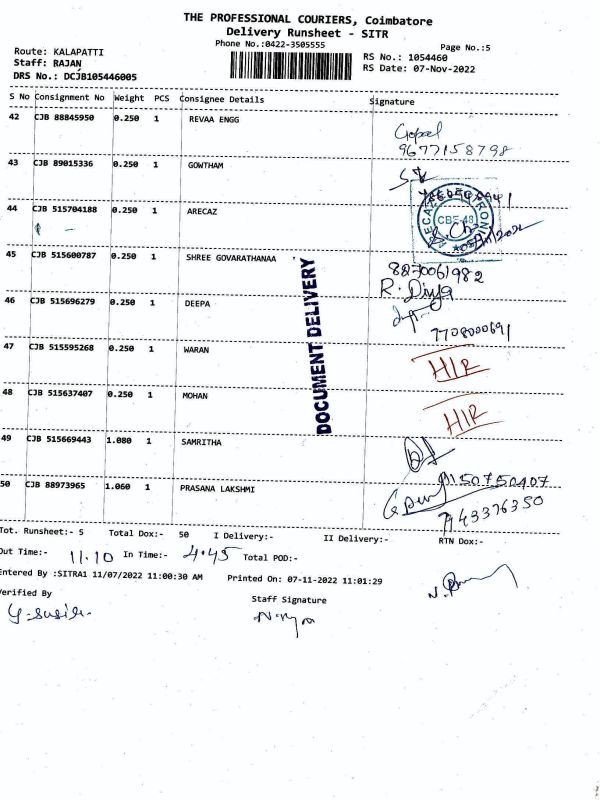 THE PROFESSIONAL COURIERS, Coimbatore
Delivery Runsheet - SITR
Phone No.:0422-3505555
Page No.:5
Route: KALAPATTI
Staff: RAJAN
DRS No.: DCJB105446005
RS No.: 1054460
RS Date: 07-Nov-2022
S No Consignment No Weight PCS Consignee Details Signature
42 CJB 88845950 0.250 1 REVAA ENGG
Gopal
9677158798
43 CJB 89015336 0.250 1 GOWTHAM
44 CJB 515704188 0.250 1 ARECAZ
CBE-48
45 CJB 515600787 0.250 1 SHREE GOVARATHANAA
8870061982
R. Divya
46 CJB 515696279 0.250 1 DEEPA
7708000691
DOCUMENT DELIVERY
47 CJB 515595268 0.250 1 WARAN
H/R
48 CJB 515637407 0.250 1 MOHAN
H/R
49 CJB 515669443 1.080 1 SAMRITHA
9150750407
50 CJB 88973965 1.060 1 PRASANA LAKSHMI
9943376350
Tot. Runsheet:- 5 Total Dox:- 50 I Delivery:- II Delivery:- RTN Dox:-
Out Time:- 11.10 In Time:- 4.45 Total POD:-
Entered By :SITRA1 11/07/2022 11:00:30 AM Printed On: 07-11-2022 11:01:29
Verified By
Staff Signature